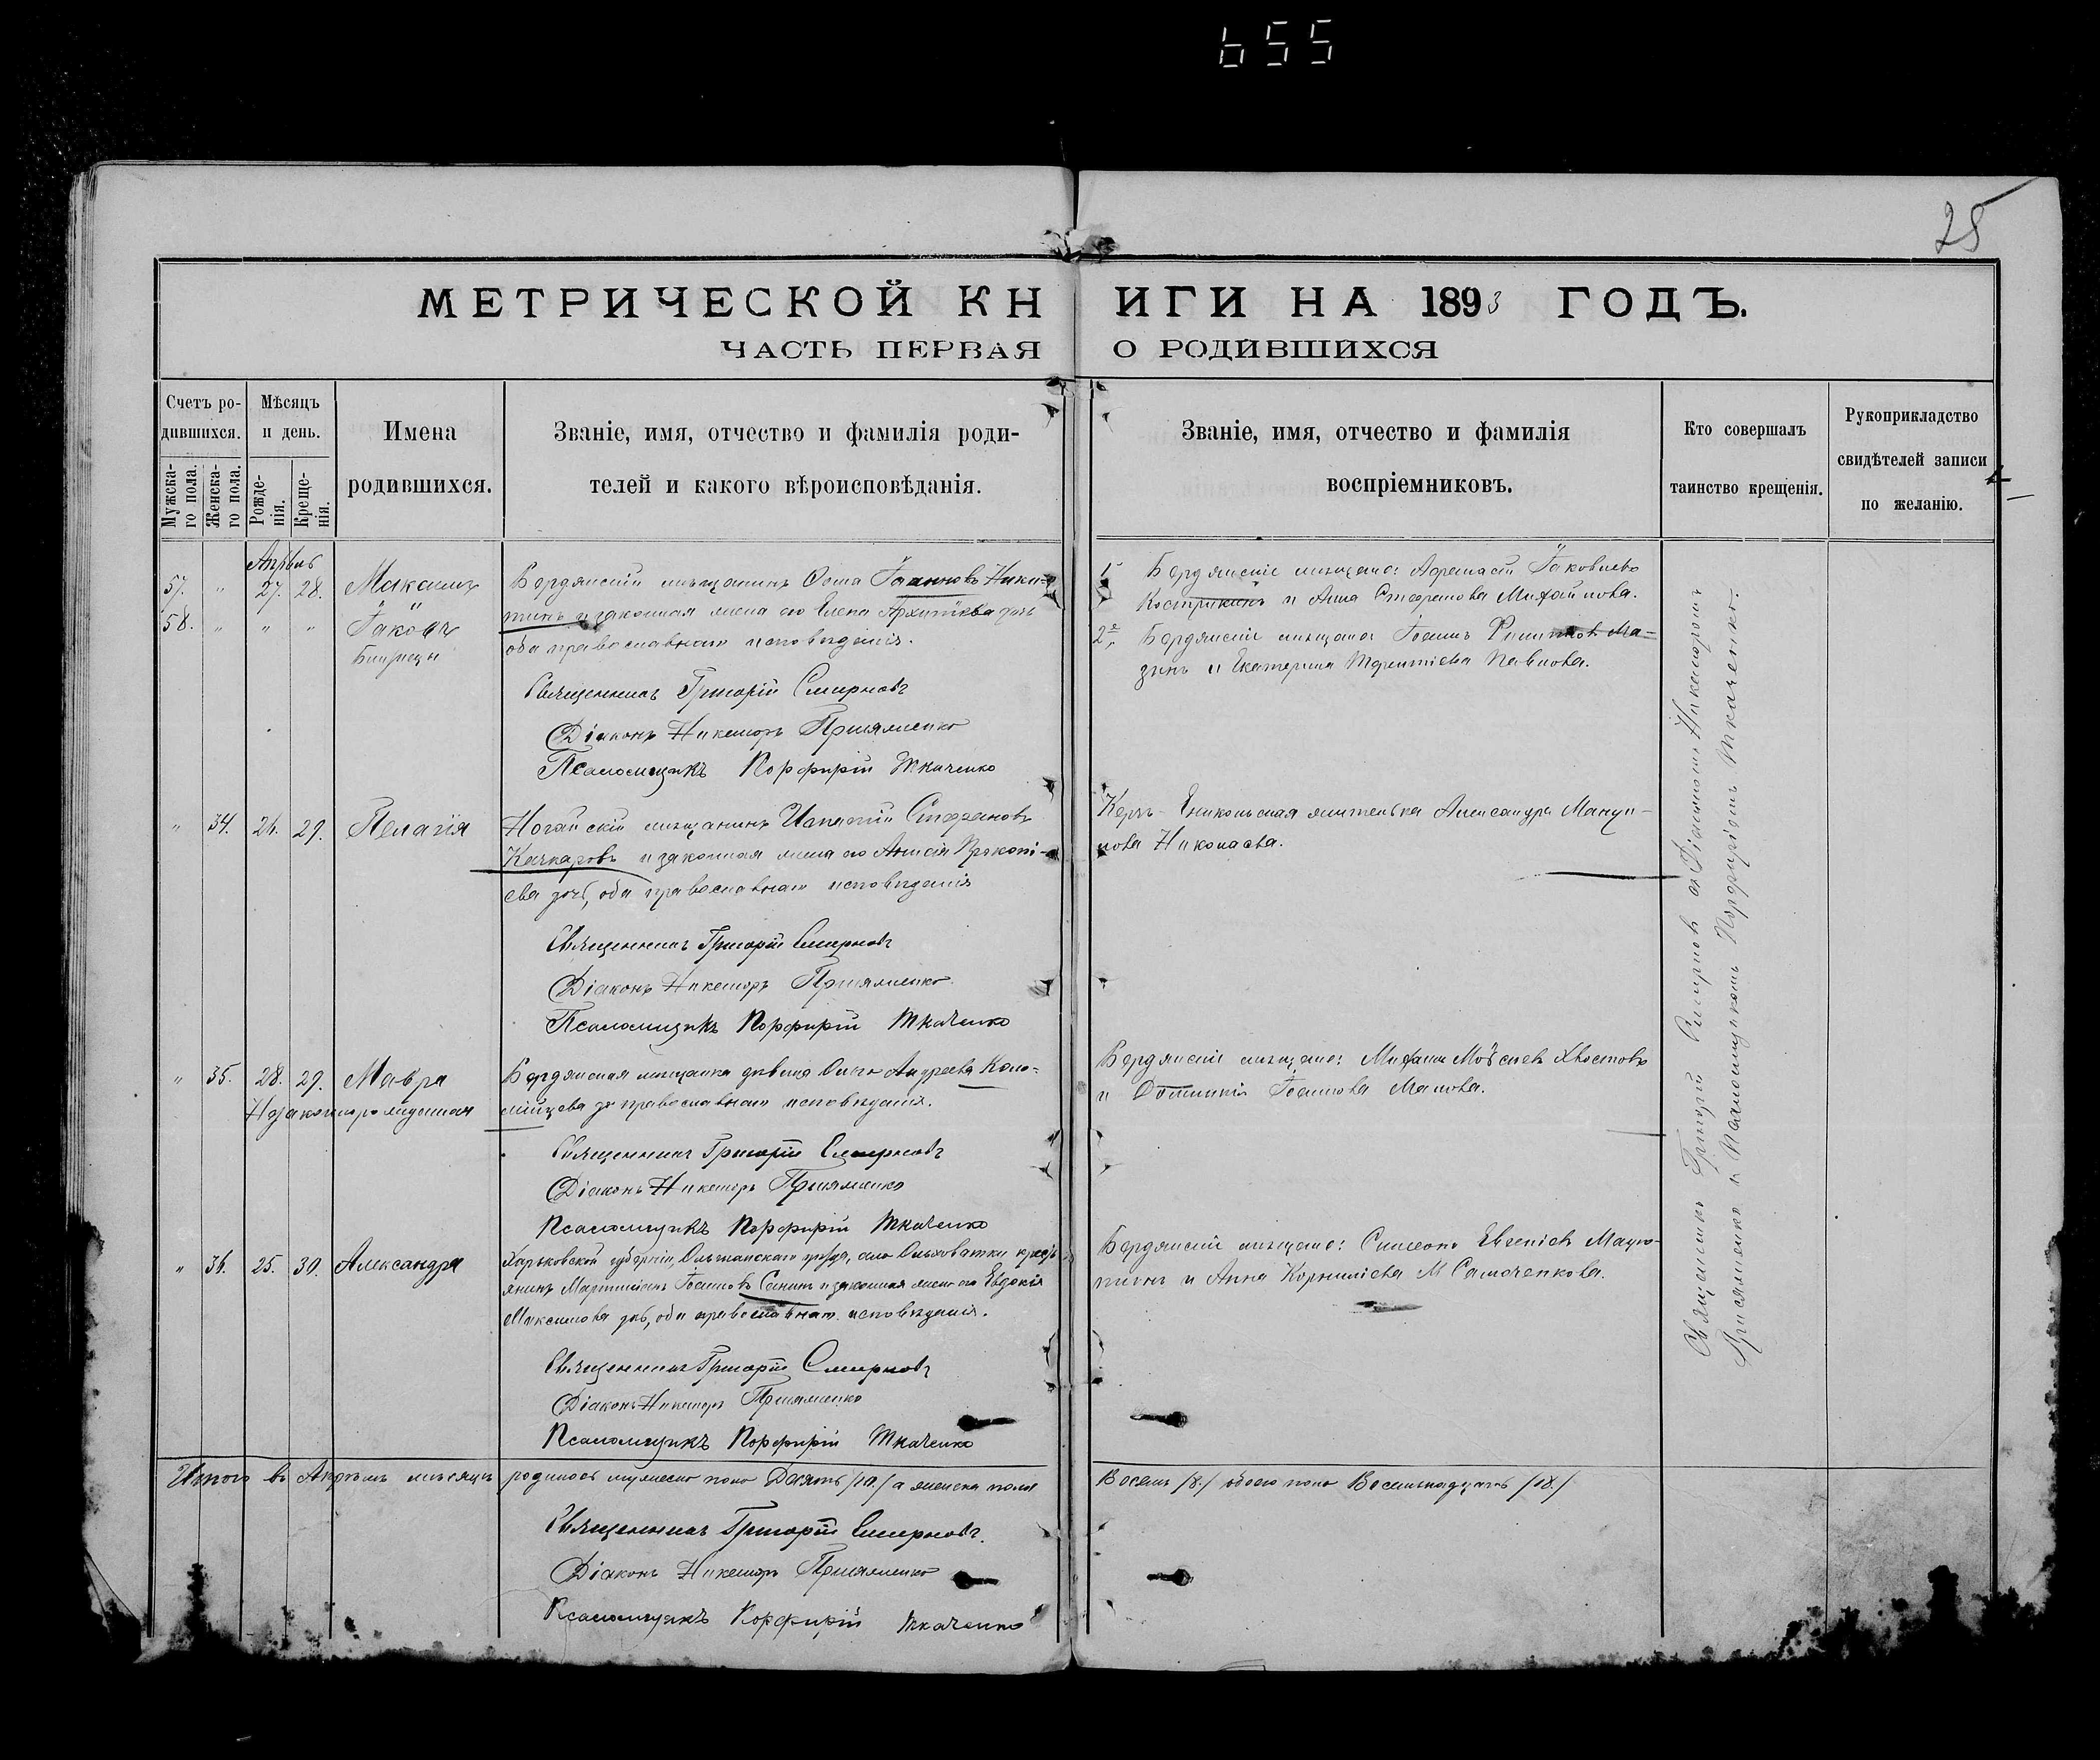 655
25
МЕТРИЧЕСКОЙ КНИГИ НА 1893 ГОДЪ.
ЧАСТЬ ПЕРВАЯ О РОДИВШИХСЯ
Счетъ родившихся.
Мужска-
го пола.
Женска-
го пола.
Мѣсяцъ
и день.
Рожде-
нія.
Креще-
нія.
Имена
родившихся.
Званіе, имя, отчество и фамилія роди-
телей и какого вѣроисповѣданія.
Званіе, имя, отчество и фамилія
воспріемниковъ.
Кто совершалъ
таинство крещенія.
Рукоприкладство
свидѣтелей записи
по желанію.
Апрѣль
57. " 27. 28. Максимъ
58. " " " Іаковъ
Близнецы
Бердянскій мѣщанинъ Ѳома Іоанновъ Ники-
тинъ и законная жена его Елена Архипова дочь
оба православнаго исповѣданія.
Священникъ Григорій Смирновъ
Діаконъ Никифоръ Присяженко
Псаломщикъ Порфирій Ткаченко
1. Бердянскіе мѣщане: Аѳанасій Іаковлевъ
Кострикинъ и Анна Стефанова Михайлова.
2е. Бердянскіе мѣщане Іоаннъ Филипповъ Ма-
зинъ и Екатерина Терентіева Павлова.
" 34. 26. 29. Пелагія
Ногайскій мѣщанинъ Игнатій Стефановъ
Качкаровъ и законная жена его Анисія Прокопі-
ева дочь, оба православнаго исповѣданія
Священникъ Григорій Смирновъ
Діаконъ Никифоръ Присяженко
Псаломщикъ Порфирій Ткаченко
Керчь-Еникольская жителька Александра Мануи-
лова Николаева.
" 35. 28. 29. Мавра
Незаконнорожденная
Бердянская мѣщанка дѣвица Ольга Андреева Коло-
мійцева православнаго исповѣданія.
Священникъ Григорій Смирновъ
Діаконъ Никифоръ Присяженко
Псаломщикъ Порфирій Ткаченко
Бердянскіе мѣщане: Михаилъ Моѵсіевъ Хвостовъ
и Домникія Іоаннова Малова.
" 36. 25. 30. Александра
Харьковской губерніи, уѣзда, села Ольховатки кресть
янинъ Мартиніанъ Іоанновъ Санинъ и законная жена его Евдокія
Максимова дочь, оба православнаго исповѣданія.
Священникъ Григорій Смирновъ
Діаконъ Никифоръ Присяженко
Псаломщикъ Порфирій Ткаченко
Бердянскіе мѣщане: Симеонъ Евгеніевъ
и Анна Корниліева Самоченкова.
Священникъ Григорій Смирновъ съ Діакономъ Никифоромъ
Присяженко и Псаломщикомъ Порфиріемъ Ткаченко.
Итого въ Апрѣлѣ мѣсяцѣ родилось мужеска пола Десять /10./ а женска пола Восемь /8./ обоего пола Восемнадцать /18./
Священникъ Григорій Смирновъ.
Діаконъ Никифоръ Присяженко
Псаломщикъ Порфирій Ткаченко